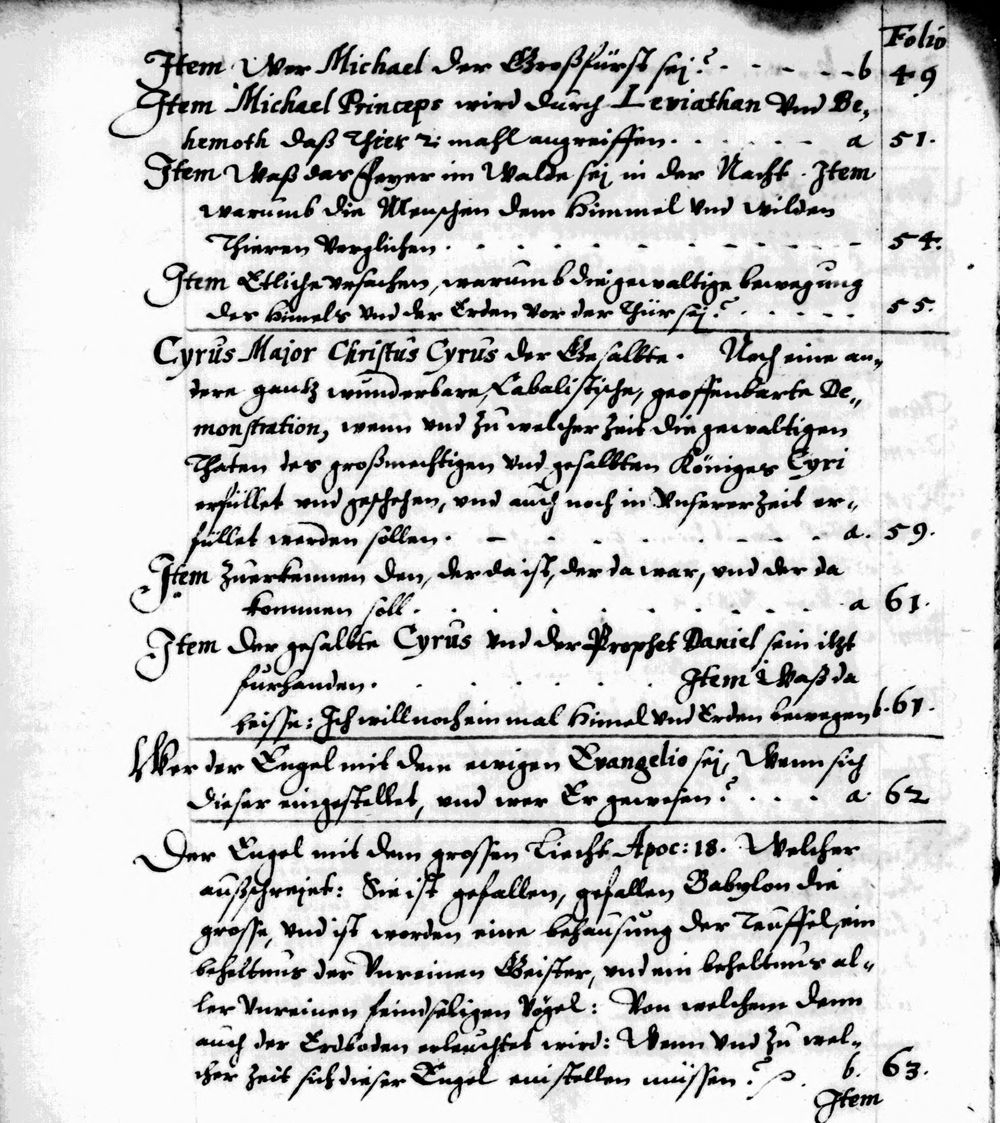 Folio
Item Wer Michael der Großfürst sej? b 49
Item Michael Princeps wird durch Leviathan Vnd Be,
hemoth daß Thier 2 mahl angreiffen. a 51.
Item Waß das Feyer im Walde sej in der Nacht. Item
warumb die Menschen dem Himmel Vnd wilden
Thieren Verglichen. 54.
Item Etliche vrsachen, warumb die gewaltige bewegung
des Himels Vnd der Erden vor der Thür sej? 55.
Cyrus Major Christus Cyrus der Gesalbte. Noch eine an„
dere gantz wunderbare, Cabalistische, geoffenbarte De„
monstration, wenn vnd zu welcher Zeit die gewaltigen
Thaten des großmechtigen Vnd gesalbten Königes Cyri
erfüllet vnd geschehen, vnd auch noch in Vnserer Zeit er„
füllet werden sollen. a. 59.
Item Zuerkennen den, der da ist, der da war, vnd der da
kommen soll. a 61.
Item der gesalbte Cyrus Vnd der Prophet Daniel sein itzt
furhanden. Item Waß da
heisse: Ich will noch ein mal Himel Vnd Erden bewegen b. 61.
Wer der Engel mit dem ewigen Evangelio sej, Wenn sich
dieser eingestellet, vnd wer Er gewesen? a 62
Der Engel mit dem grossen Liecht Apoc: 18. Welcher
außschrejet: Sie ist gefallen, gefallen Babylon die
grosse, Vnd ist worden eine behausung der Teuffel, ein
beheltnus der Vnreinen Geister, vnd ein beheltnus al„
ler Vnreinen feindseligen Vögel: Von welchem denn
auch der Erdboden erleuchtet wird: Wenn Vnd zu wel„
cher Zeit sich dieser Engel einstellen müssen? b. 63.
Item